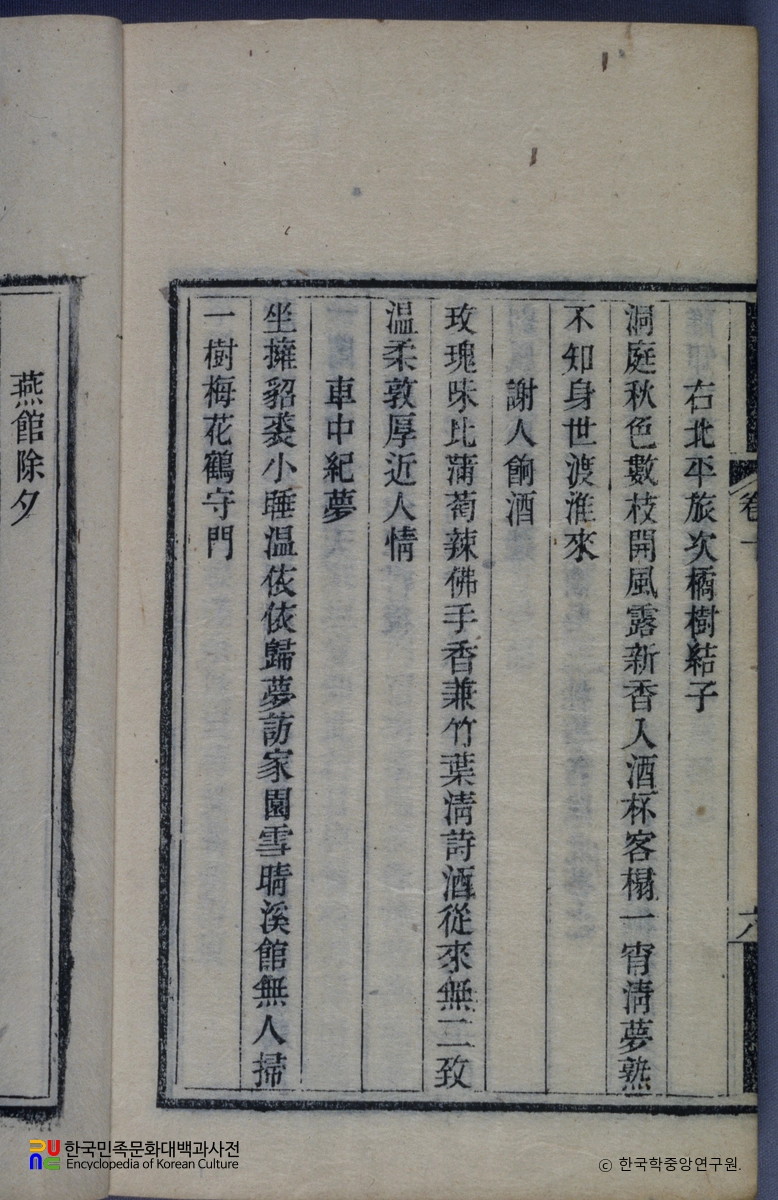 卷一
六
右北平旅次橘樹結子
洞庭秋色數枝開風露新香入酒杯客榻一宵淸夢熟
不知身世渡淮來
謝人餉酒
玫瑰味比蒲萄辣佛手香兼竹葉淸詩酒從來無二致
温柔敦厚近人情
車中紀夢
坐擁貂裘小睡温依依歸夢訪家園雪晴溪館無人掃
一樹梅花鶴守門
燕館除夕
한국민족문화대백과사전
Encyclopedia of Korean Culture
ⓒ 한국학중앙연구원.